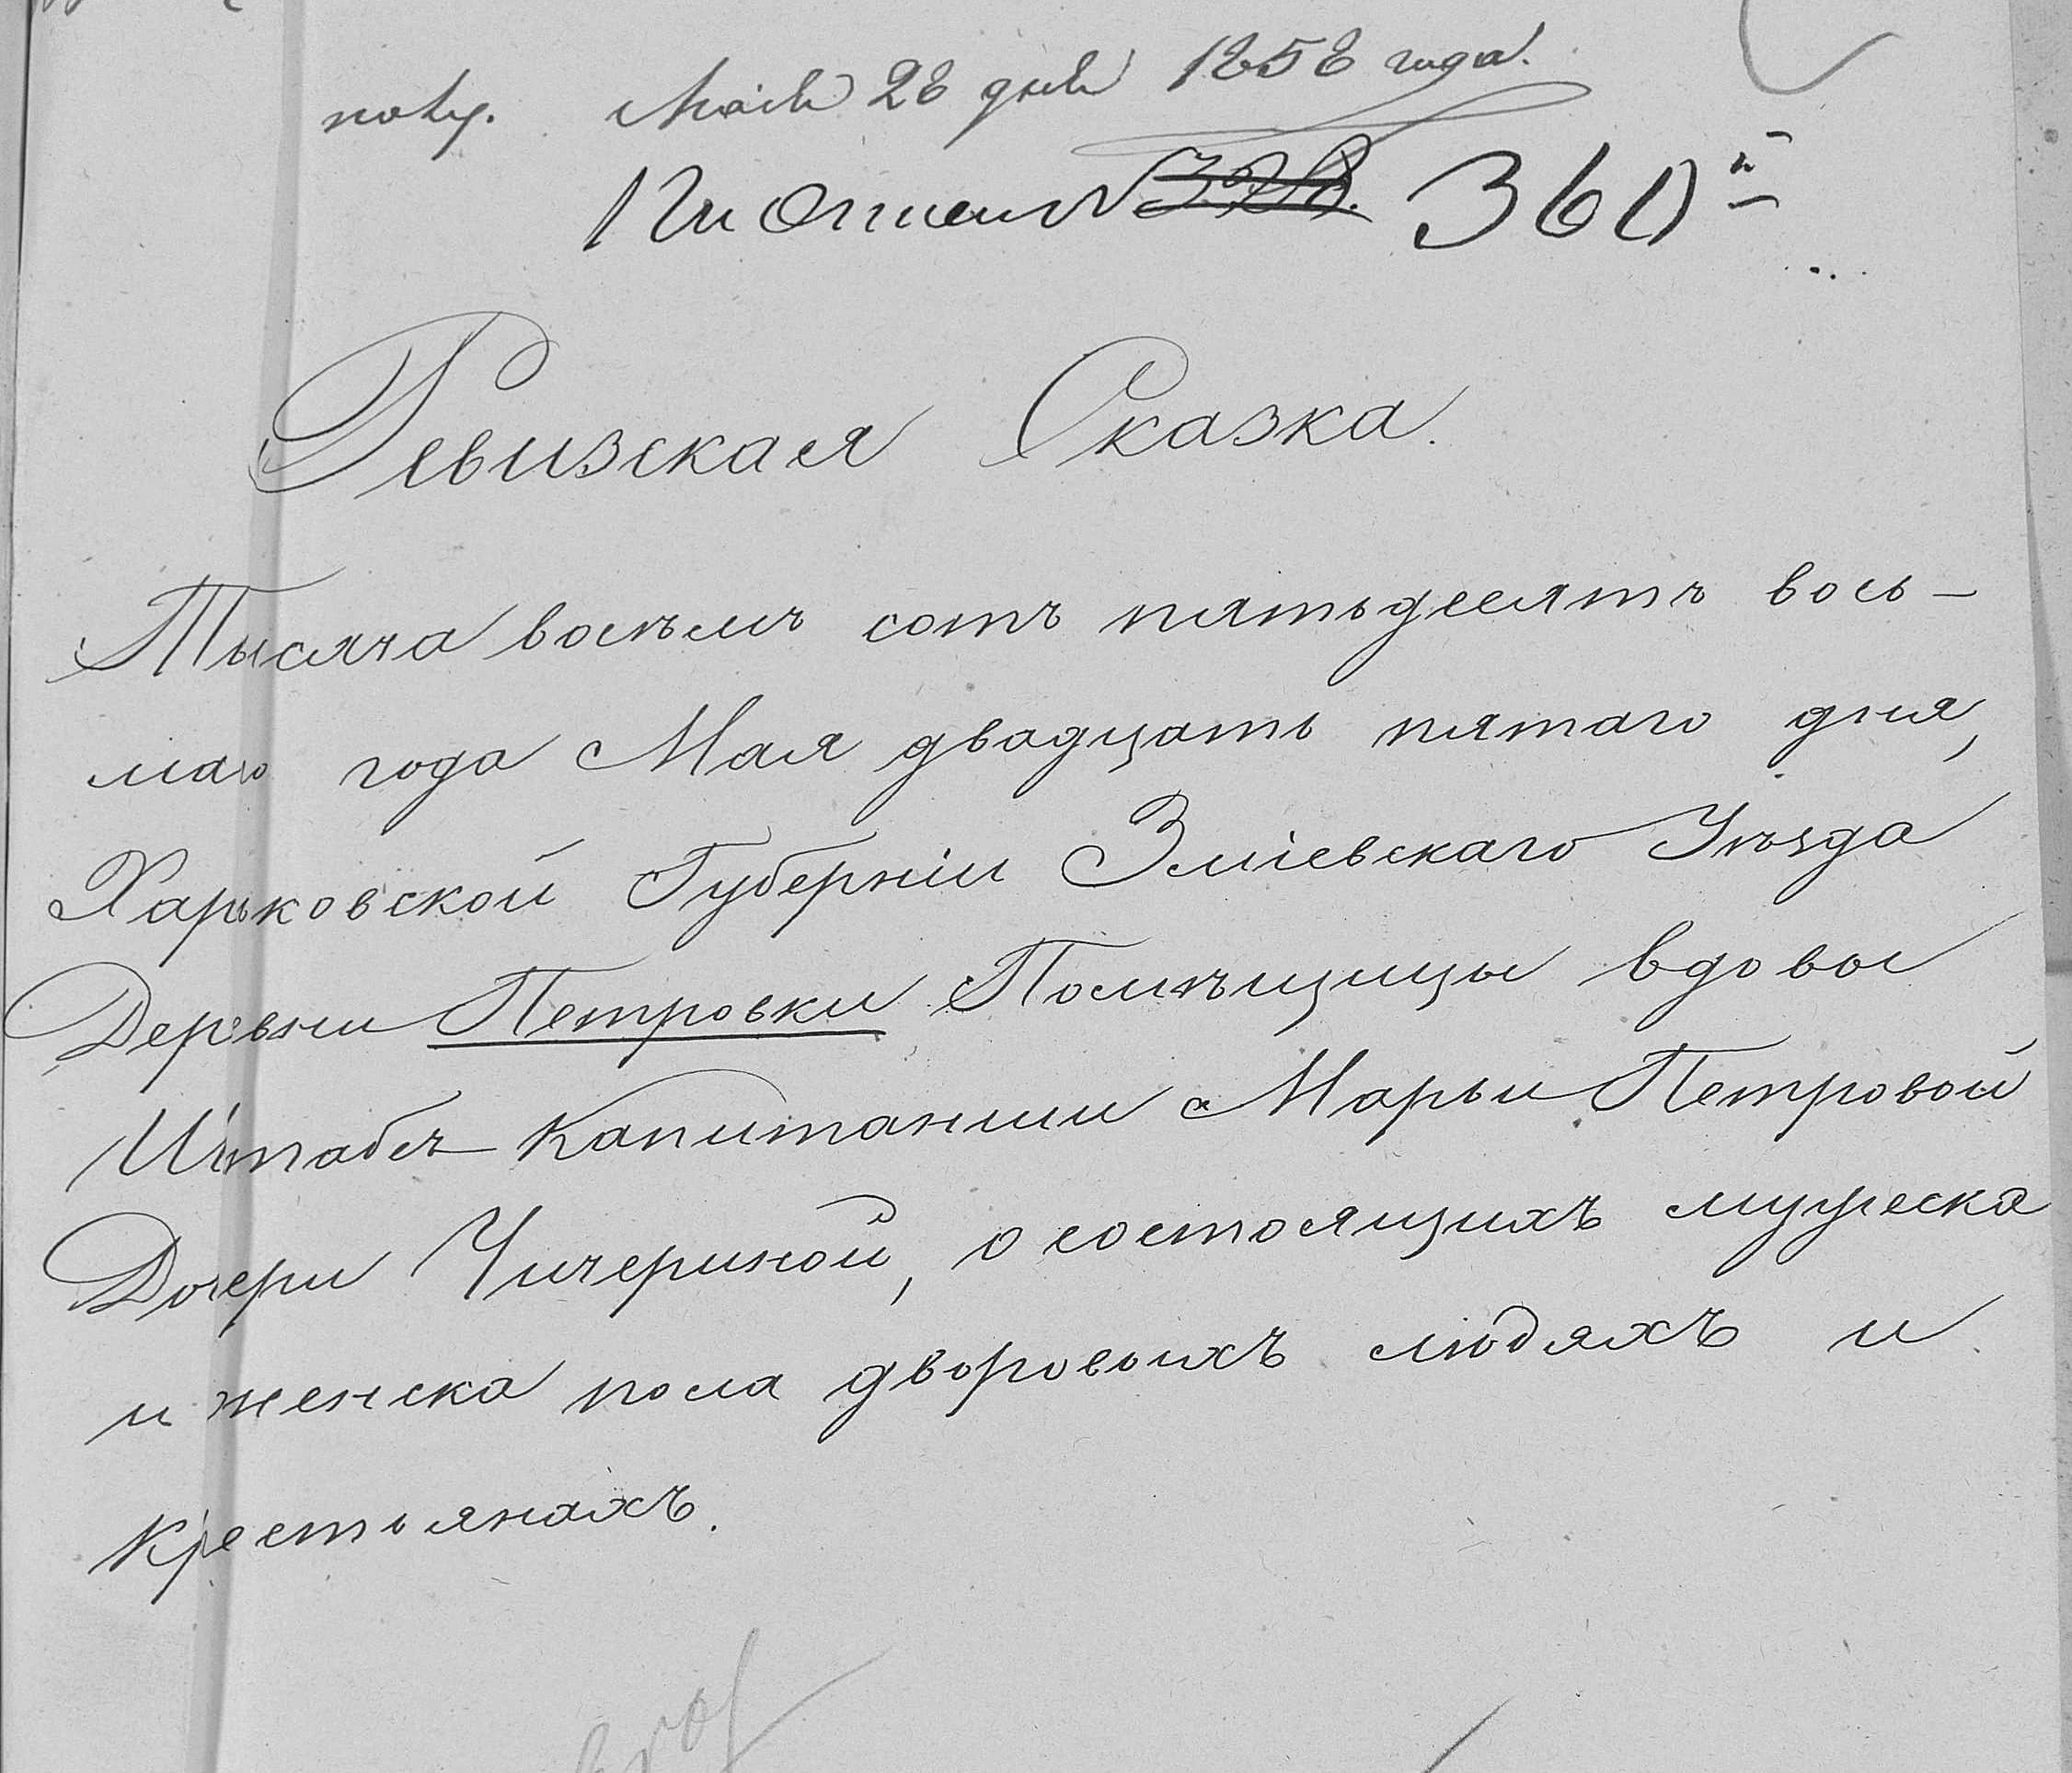 получ. Мая 28 дня 1858 года.
По описи 360й
Ревизская Сказка.
Тысяча восѣмъ сотъ пятьдесятъ вось-
маго года Мая двадцать пятаго дня,
Харьковской Губерніи Зміевскаго Уѣзда
Деревни Петровки Помѣщицы вдовы
Штабсъ Капитанши Марьи Петровой
Дочери Чичериной, о состоящихъ мужеска
и женска пола дворовыхъ людяхъ и
крестьянахъ.